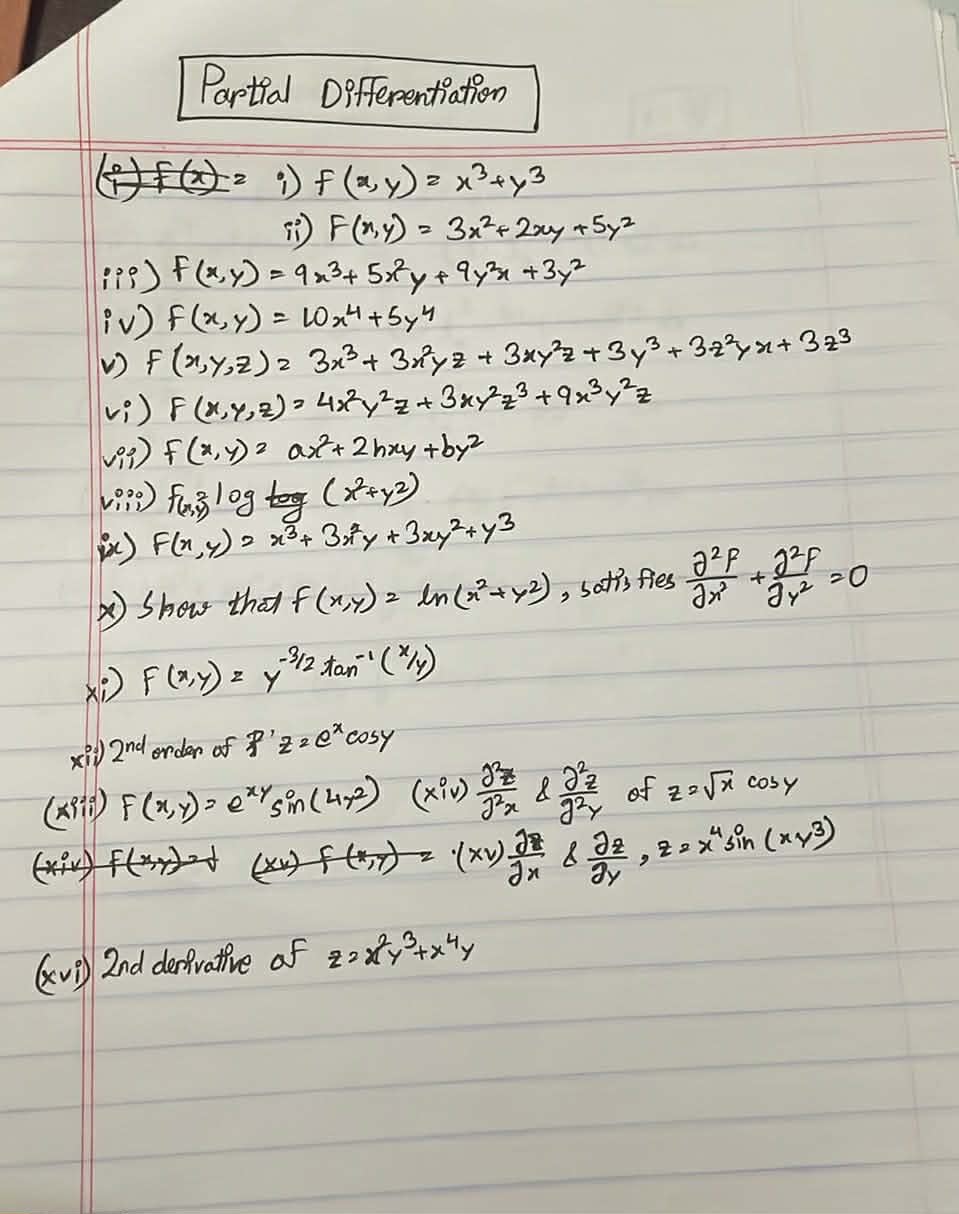 Partial Differentiation
i) f(x,y) = x³+y³
ii) F(x,y) = 3x²+2xy+5y²
iii) f(x,y) = 9x³+5x²y+9y²x+3y²
iv) f(x,y) = 10x⁴+5y⁴
v) f(x,y,z) = 3x³+3x²yz+3xy²z+3y³+3z²yx+3z³
vi) f(x,y,z) = 4x²y²z+3xy²z³+9x³y²z
vii) f(x,y) = ax²+2hxy+by²
viii) f(x,y) = log (x²+y²)
ix) F(x,y) = x³+3x²y+3xy²+y³
x) Show that f(x,y) = ln(x²+y²), satisfies ∂²f/∂x² + ∂²f/∂y² = 0
xi) F(x,y) = y^(-3/2) tan⁻¹(x/y)
xii) 2nd order of z = eˣ cosy
(xiii) F(x,y) = e^(xy) sin(4y²) (xiv) ∂²z/∂²x & ∂²z/∂²y of z = √x cosy
(xv) ∂z/∂x & ∂z/∂y, z = x⁴ sin(xy³)
(xvi) 2nd derivative of z = x²y³+x⁴y